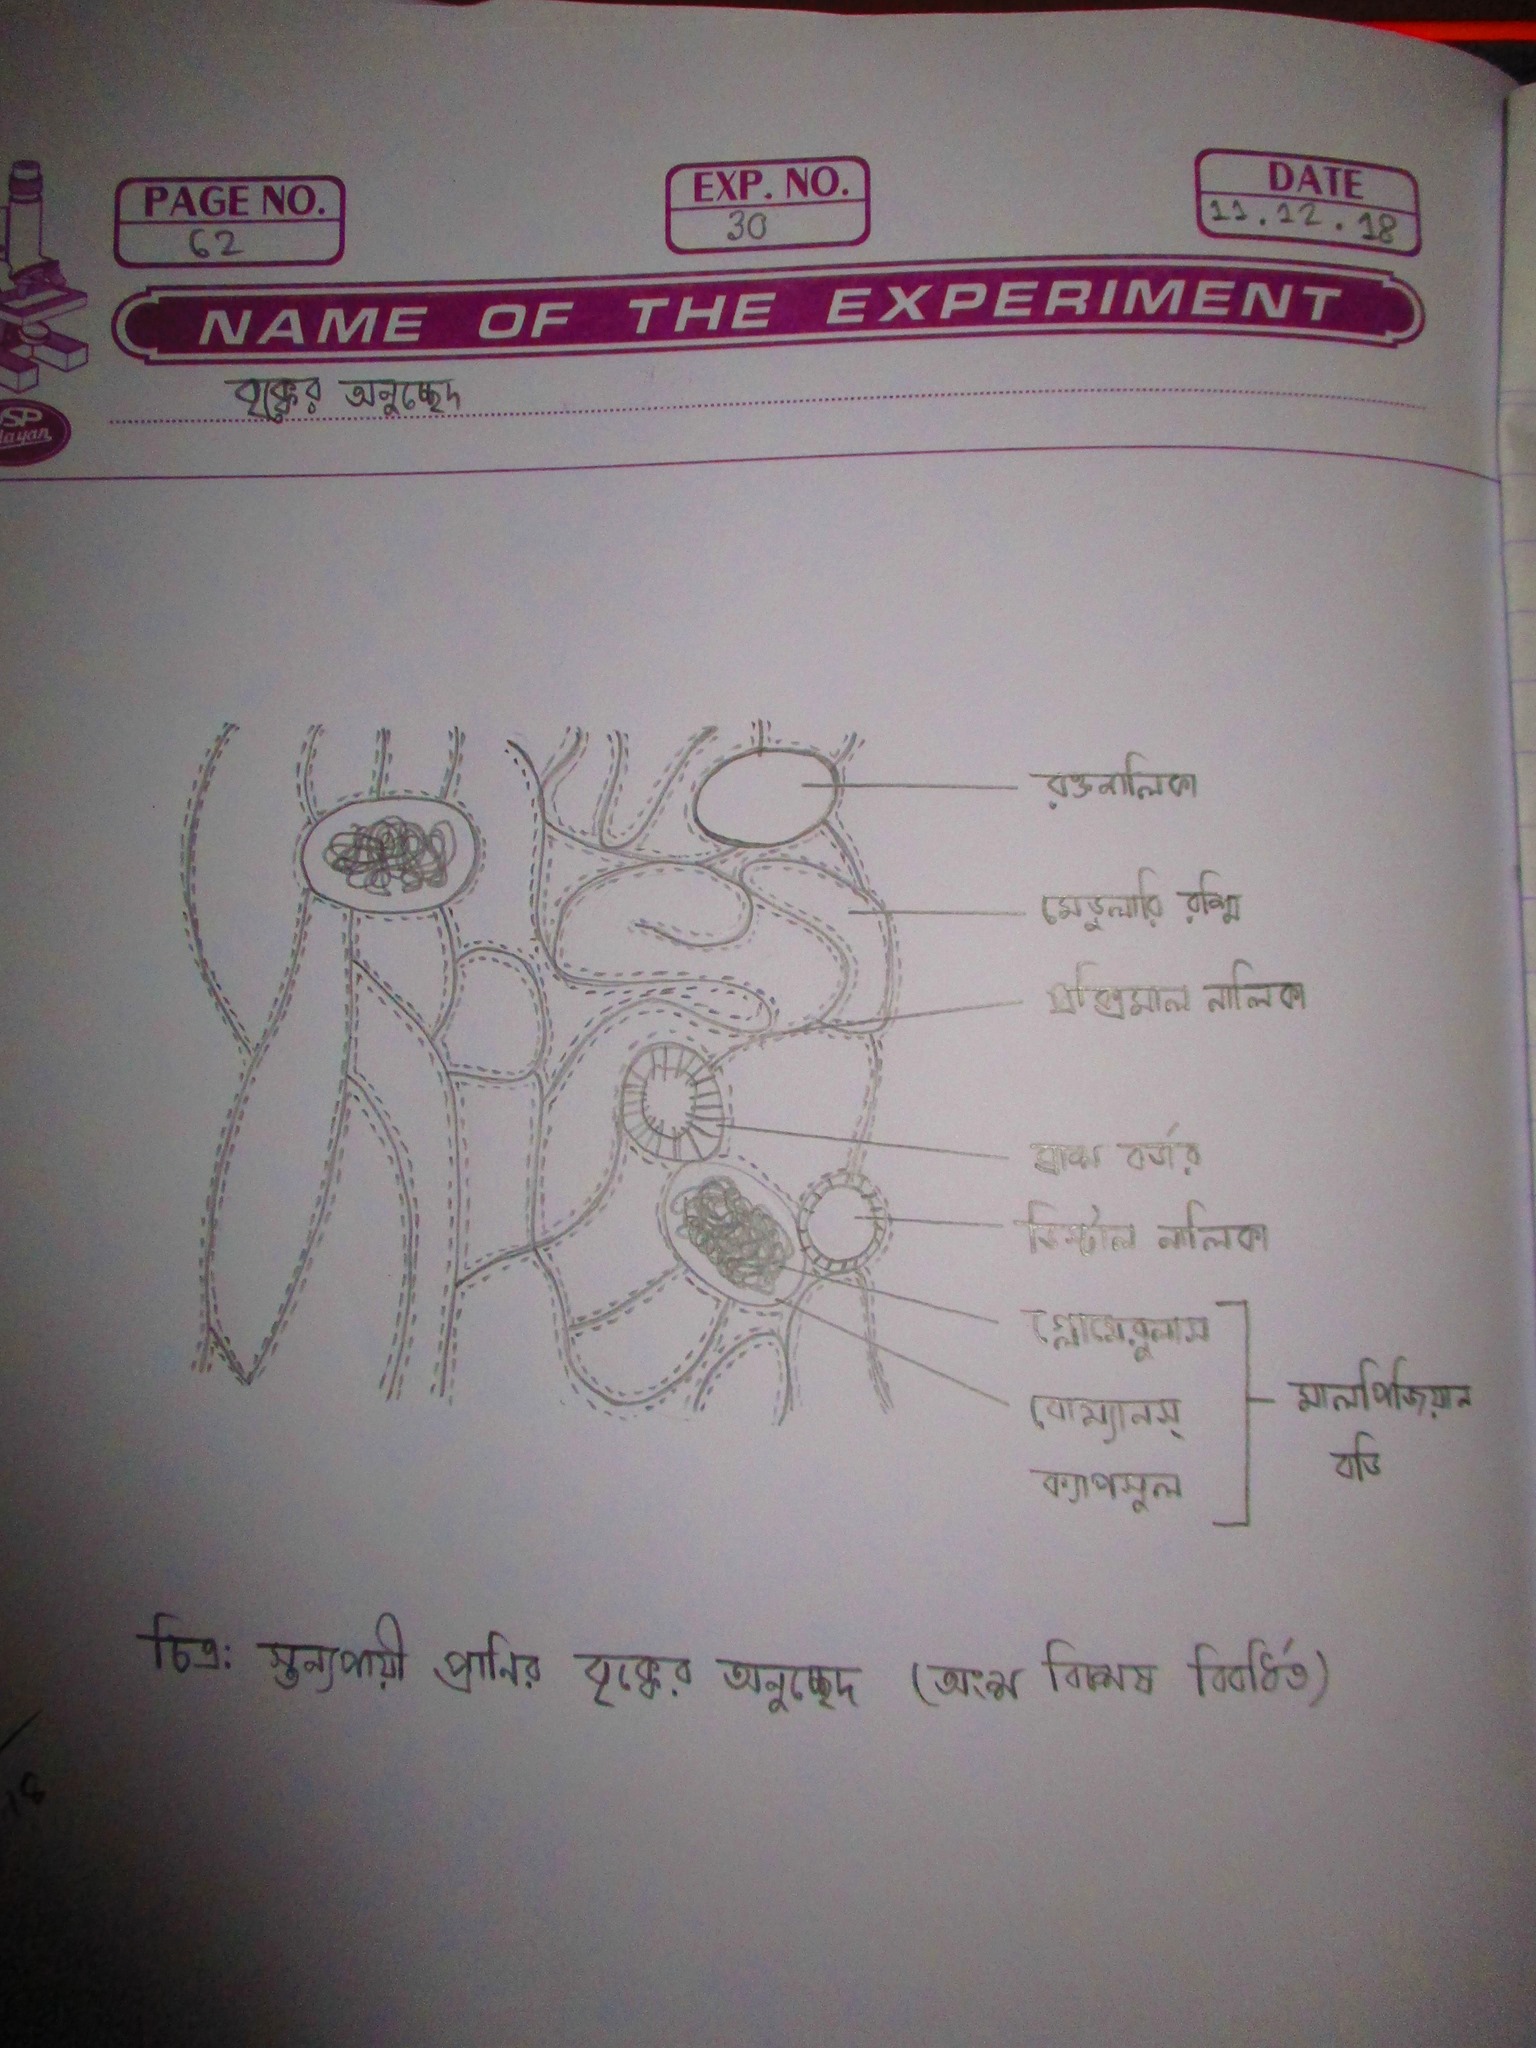 PAGE NO.
62
EXP. NO.
30
DATE
11.12.18
NAME OF THE EXPERIMENT
বৃক্কের অনুচ্ছেদ
রক্তনালিকা
মেডুলারি রশ্মি
প্রক্সিমাল নালিকা
ব্রাশ বর্ডার
ডিস্টাল নালিকা
গ্লোমেরুলাস
বোম্যানস্
ক্যাপসুল
মালপিজিয়ান
বডি
চিত্র: স্তন্যপায়ী প্রানির বৃক্কের অনুচ্ছেদ (অংশ বিশেষ বিবর্ধিত)